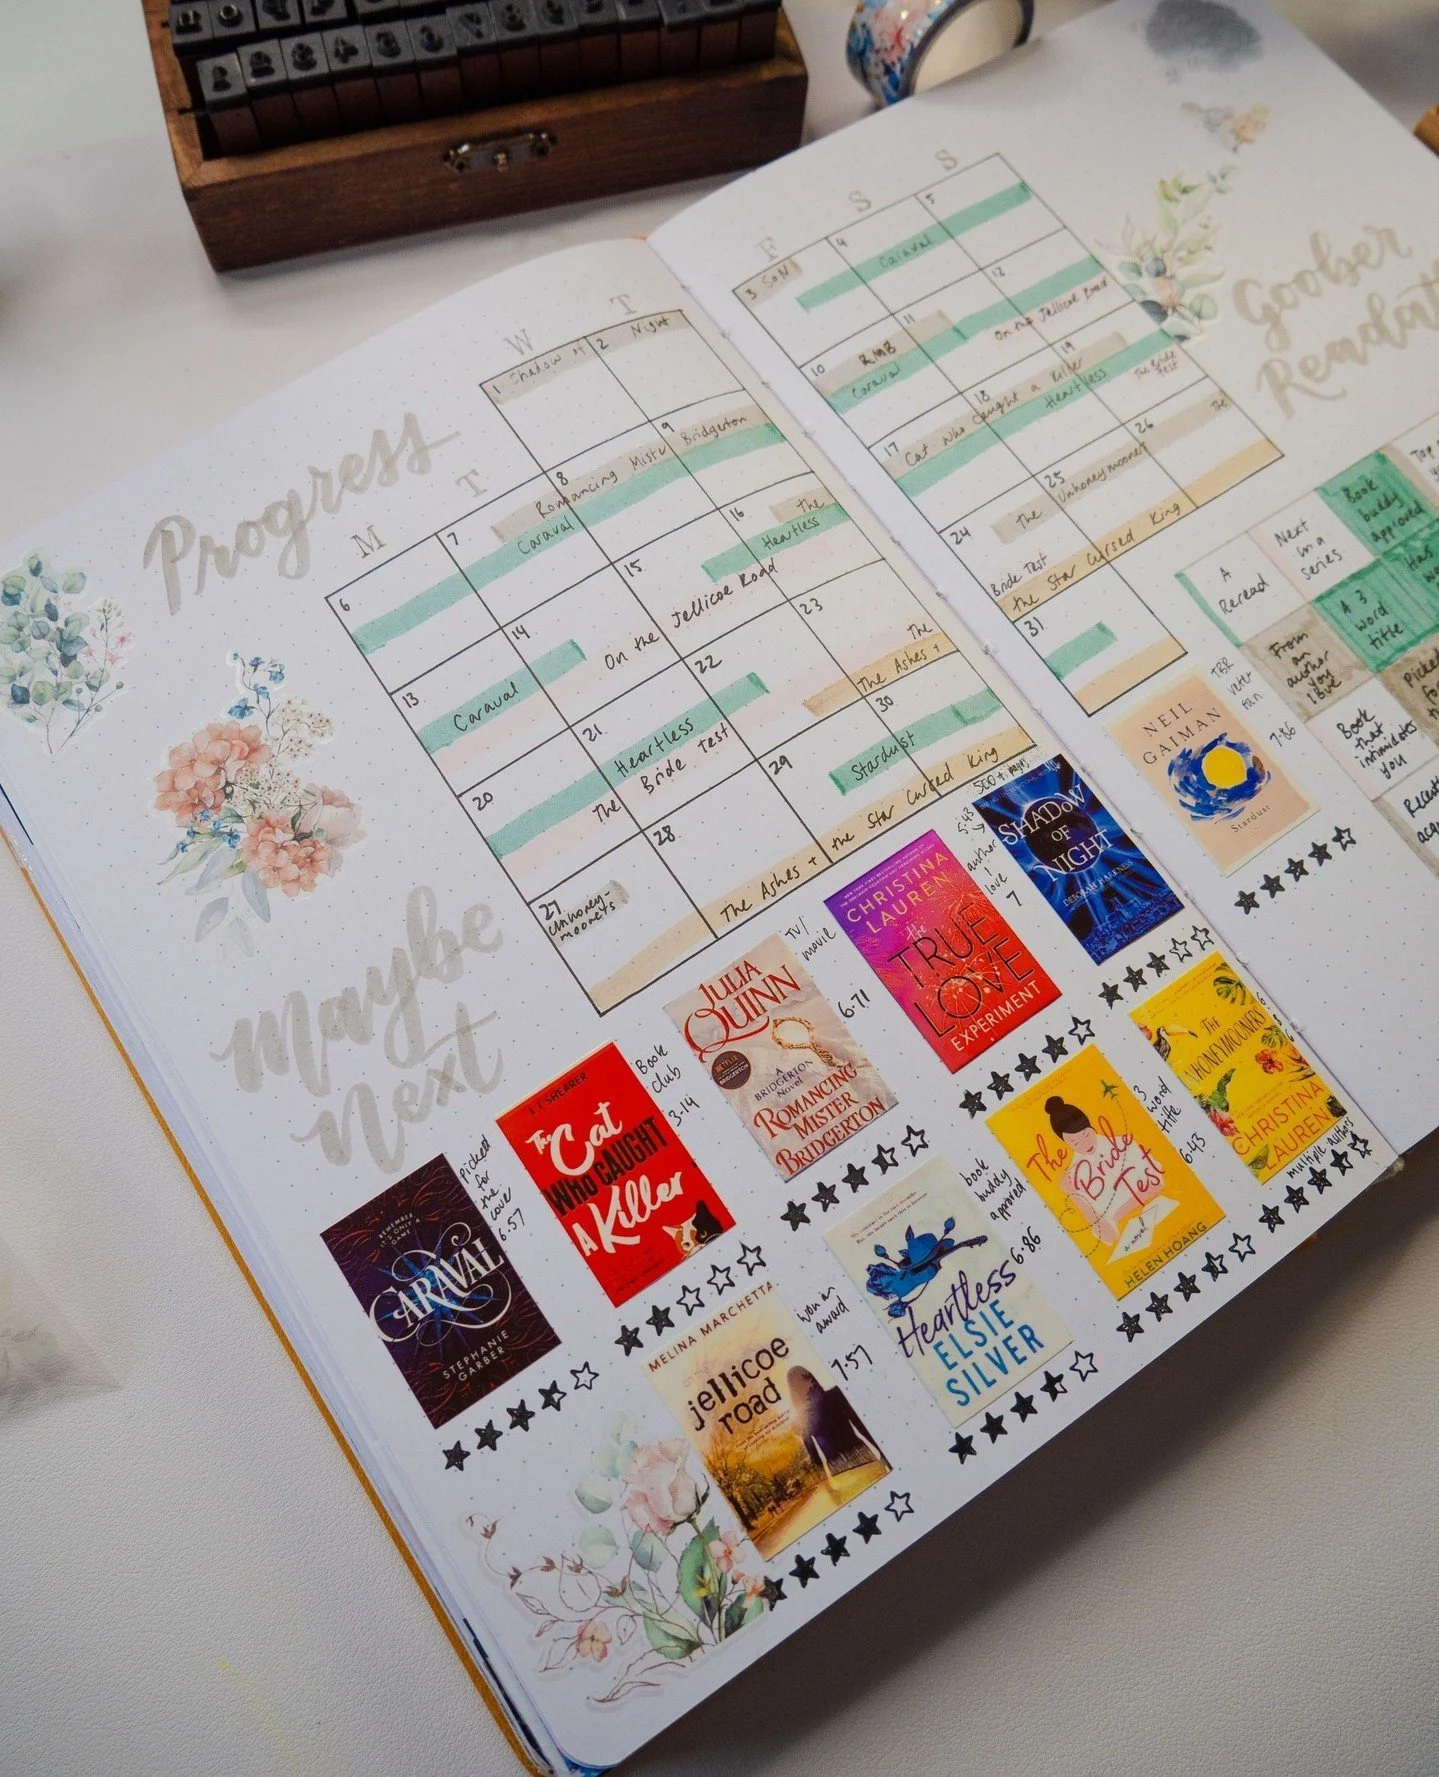 Progress
M
T
W
T
F
S
S
1
Shadow of
2
Night
3
SoN
4
Caraval
5
6
7
8
Romancing Mister
9
Bridgerton
Caraval
10
RMB
Caraval
11
12
On the Jellicoe Road
13
Caraval
14
On the
15
Jellicoe Road
16
the
Heartless
17
Cat who caught a killer
18
Heartless
19
The Bride
Test
20
21
Heartless
The Bride Test
22
23
The
The Ashes +
24
Bride Test
25
The Unhoneymooners
26
The
the Star Cursed King
27
Unhoney-
mooners
28
29
30
Stardust
The Ashes + the Star Cursed King
31
Maybe
Next
Goober
A
Reread
Next
in a
series
Book
buddy
approved
From
an
author
you
love
A 3
word
title
Book
that
intimidates
you
REMEMBER,
IT'S ONLY A
GAME
CARAVAL
STEPHANIE
GARBER
Picked
for
the
cover
6.57
The
Cat
WHO CAUGHT
A Killer
Book
club
3.14
JULIA
QUINN
A
BRIDGERTON
Novel
ROMANCING
MISTER
BRIDGERTON
TV/
movie
6.71
CHRISTINA
LAUREN
the
TRUE
LOVE
EXPERIMENT
author
I
love
7
500+ pages
5.43
SHADOW
OF
NIGHT
DEBORAH HARKNESS
NEIL
GAIMAN
Stardust
7.86
MELINA MARCHETTA
jellicoe
road
won an
award
7.57
Heartless
ELSIE
SILVER
book
buddy
approved
6.86
The
Bride
Test
a novel
HELEN HOANG
3
word
title
6.43
THE
CHRISTINA
LAUREN
multiple authors